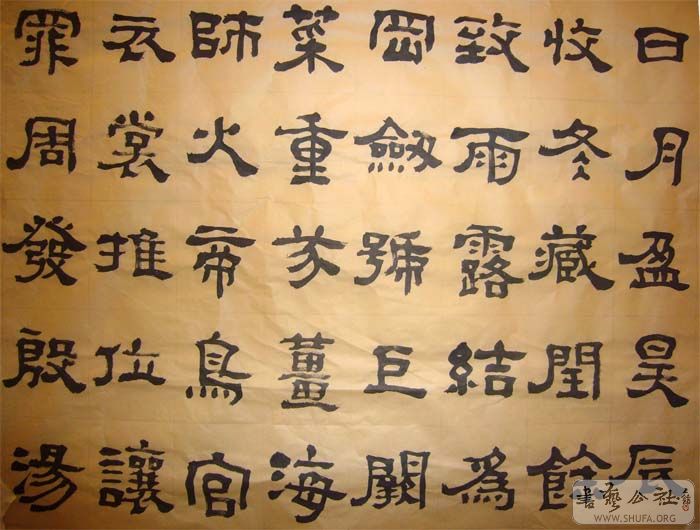 日月盈昃辰
收冬藏閏餘
致雨露結為
岡劔號巨闕
菜重芥薑海
師火帝鳥官
衣裳推位讓
罪周發殷湯
書藝公社
WWW.SHUFA.ORG